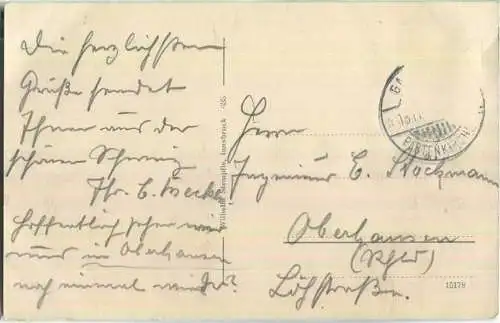 Die herzlichsten
Grüße sendet
Ihnen aus der
schönen Schweiz
Ihr E.
Hoffentlich sehen wir
uns in Oberhausen
noch einmal wieder?
Wilhelm Stempfle, Innsbruck
Herrn
Ingenieur E. Stockmann
Oberhausen
(Rhld)
Löhstraße.
PARTENKIRCHEN
15178